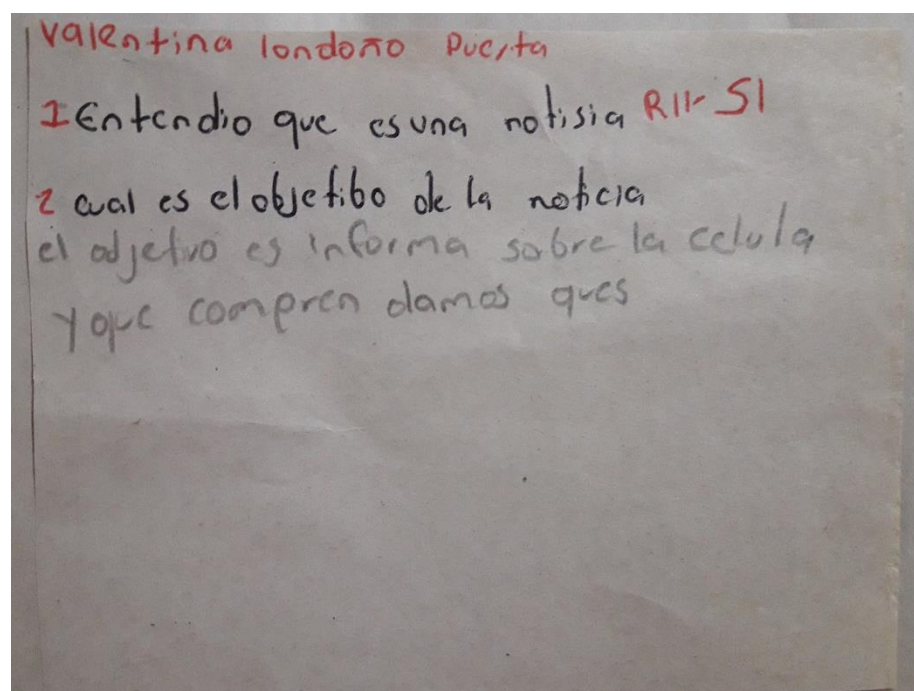 Valentina londoño Puerta
1 Entendio que es una notisia R11- SI
2 cual es el objetibo de la noticia
el odjetivo es informa sobre la celula
y que compren damos ques